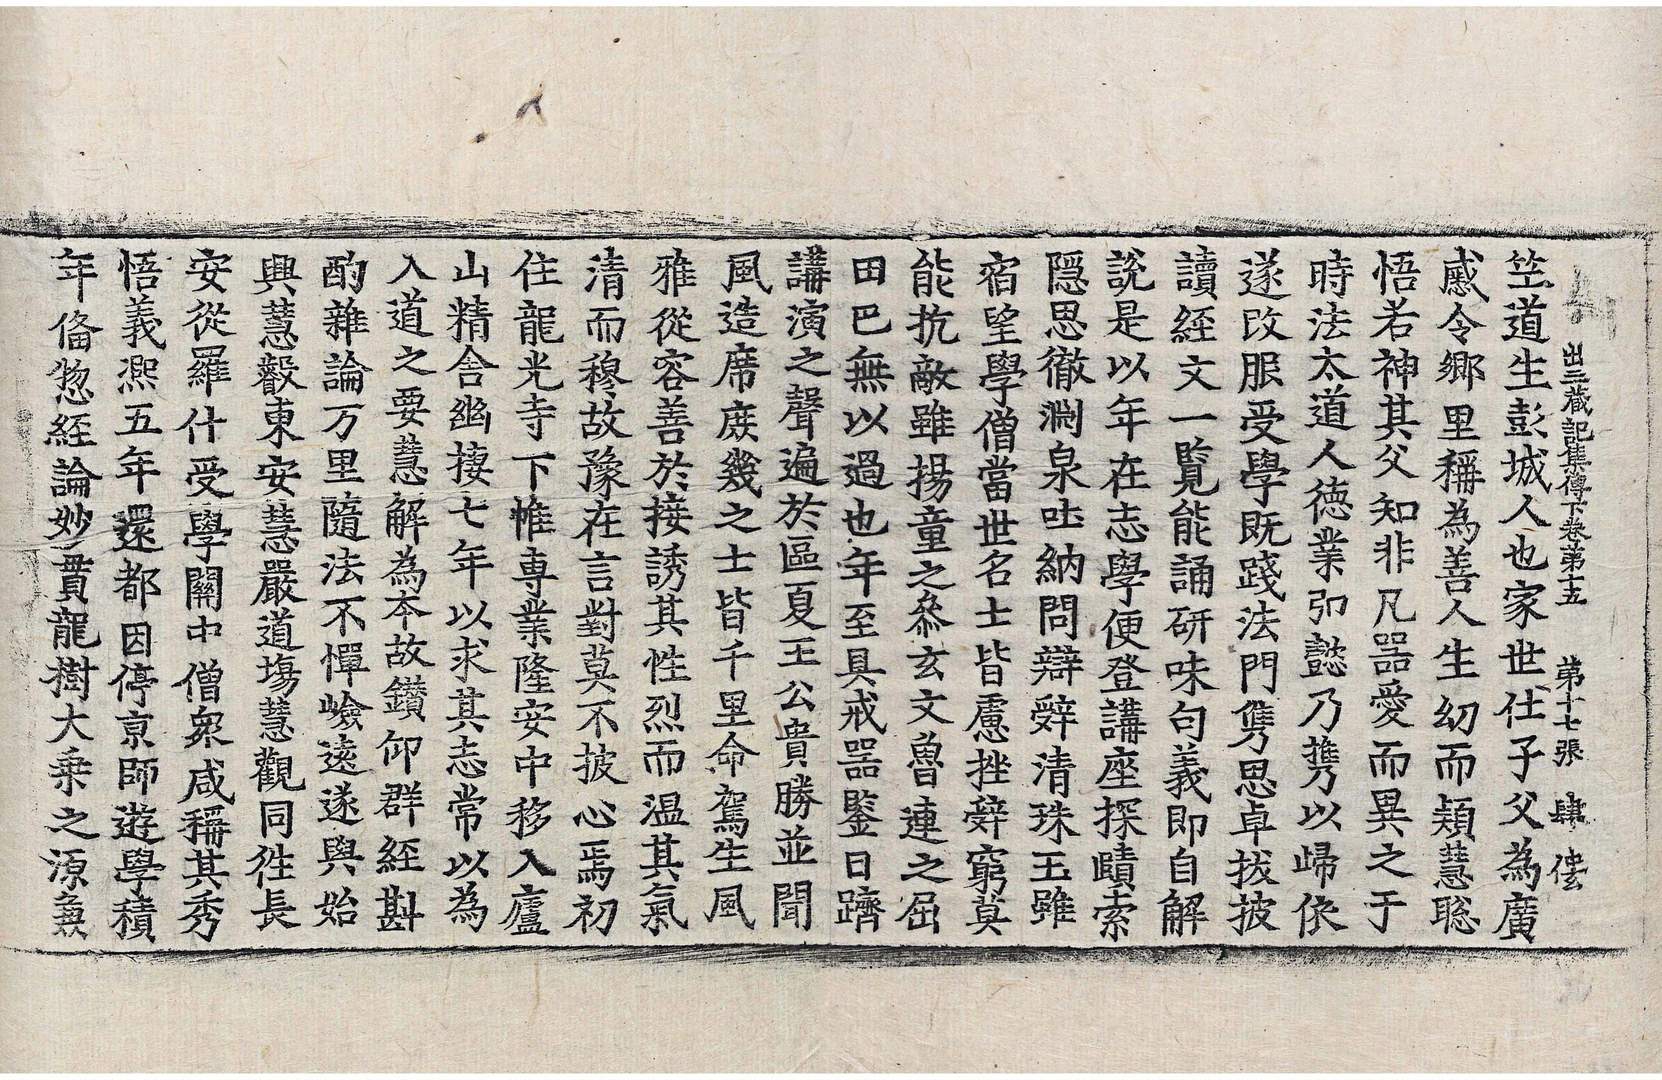 出三藏記集傳下卷第十五 第十七張 肆
竺道生彭城人也家世仕子父為廣
戚令鄉里稱為善人生幼而穎慧聡
悟若神其父知非凡器愛而異之于
時法太道人德業弘懿乃攜以歸依
遂改服受學既踐法門雋思卓拔披
讀經文一覽能誦研味句義即自解
說是以年在志學便登講座探賾索
隱思徹淵泉吐納問辯辤清珠玉雖
宿望學僧當世名士皆慮挫辤窮莫
能抗敵雖揚童之叅玄文魯連之屈
田巴無以過也年至具戒器鑒日躋
講演之聲遍於區夏王公貴勝並聞
風造席庶幾之士皆千里命駕生風
雅從容善於接誘其性烈而溫其氣
清而穆故豫在言對莫不披心焉初
住龍光寺下帷専業隆安中移入廬
山精舍幽捿七年以求其志常以為
入道之要慧解為本故鑽仰群經斟
酌雜論万里隨法不憚嶮遠遂與始
興慧叡東安慧嚴道場慧觀同徃長
安從羅什受學關中僧衆咸稱其秀
悟義熙五年還都因停京師遊學積
年俻惣經論妙貫龍樹大乗之源兼